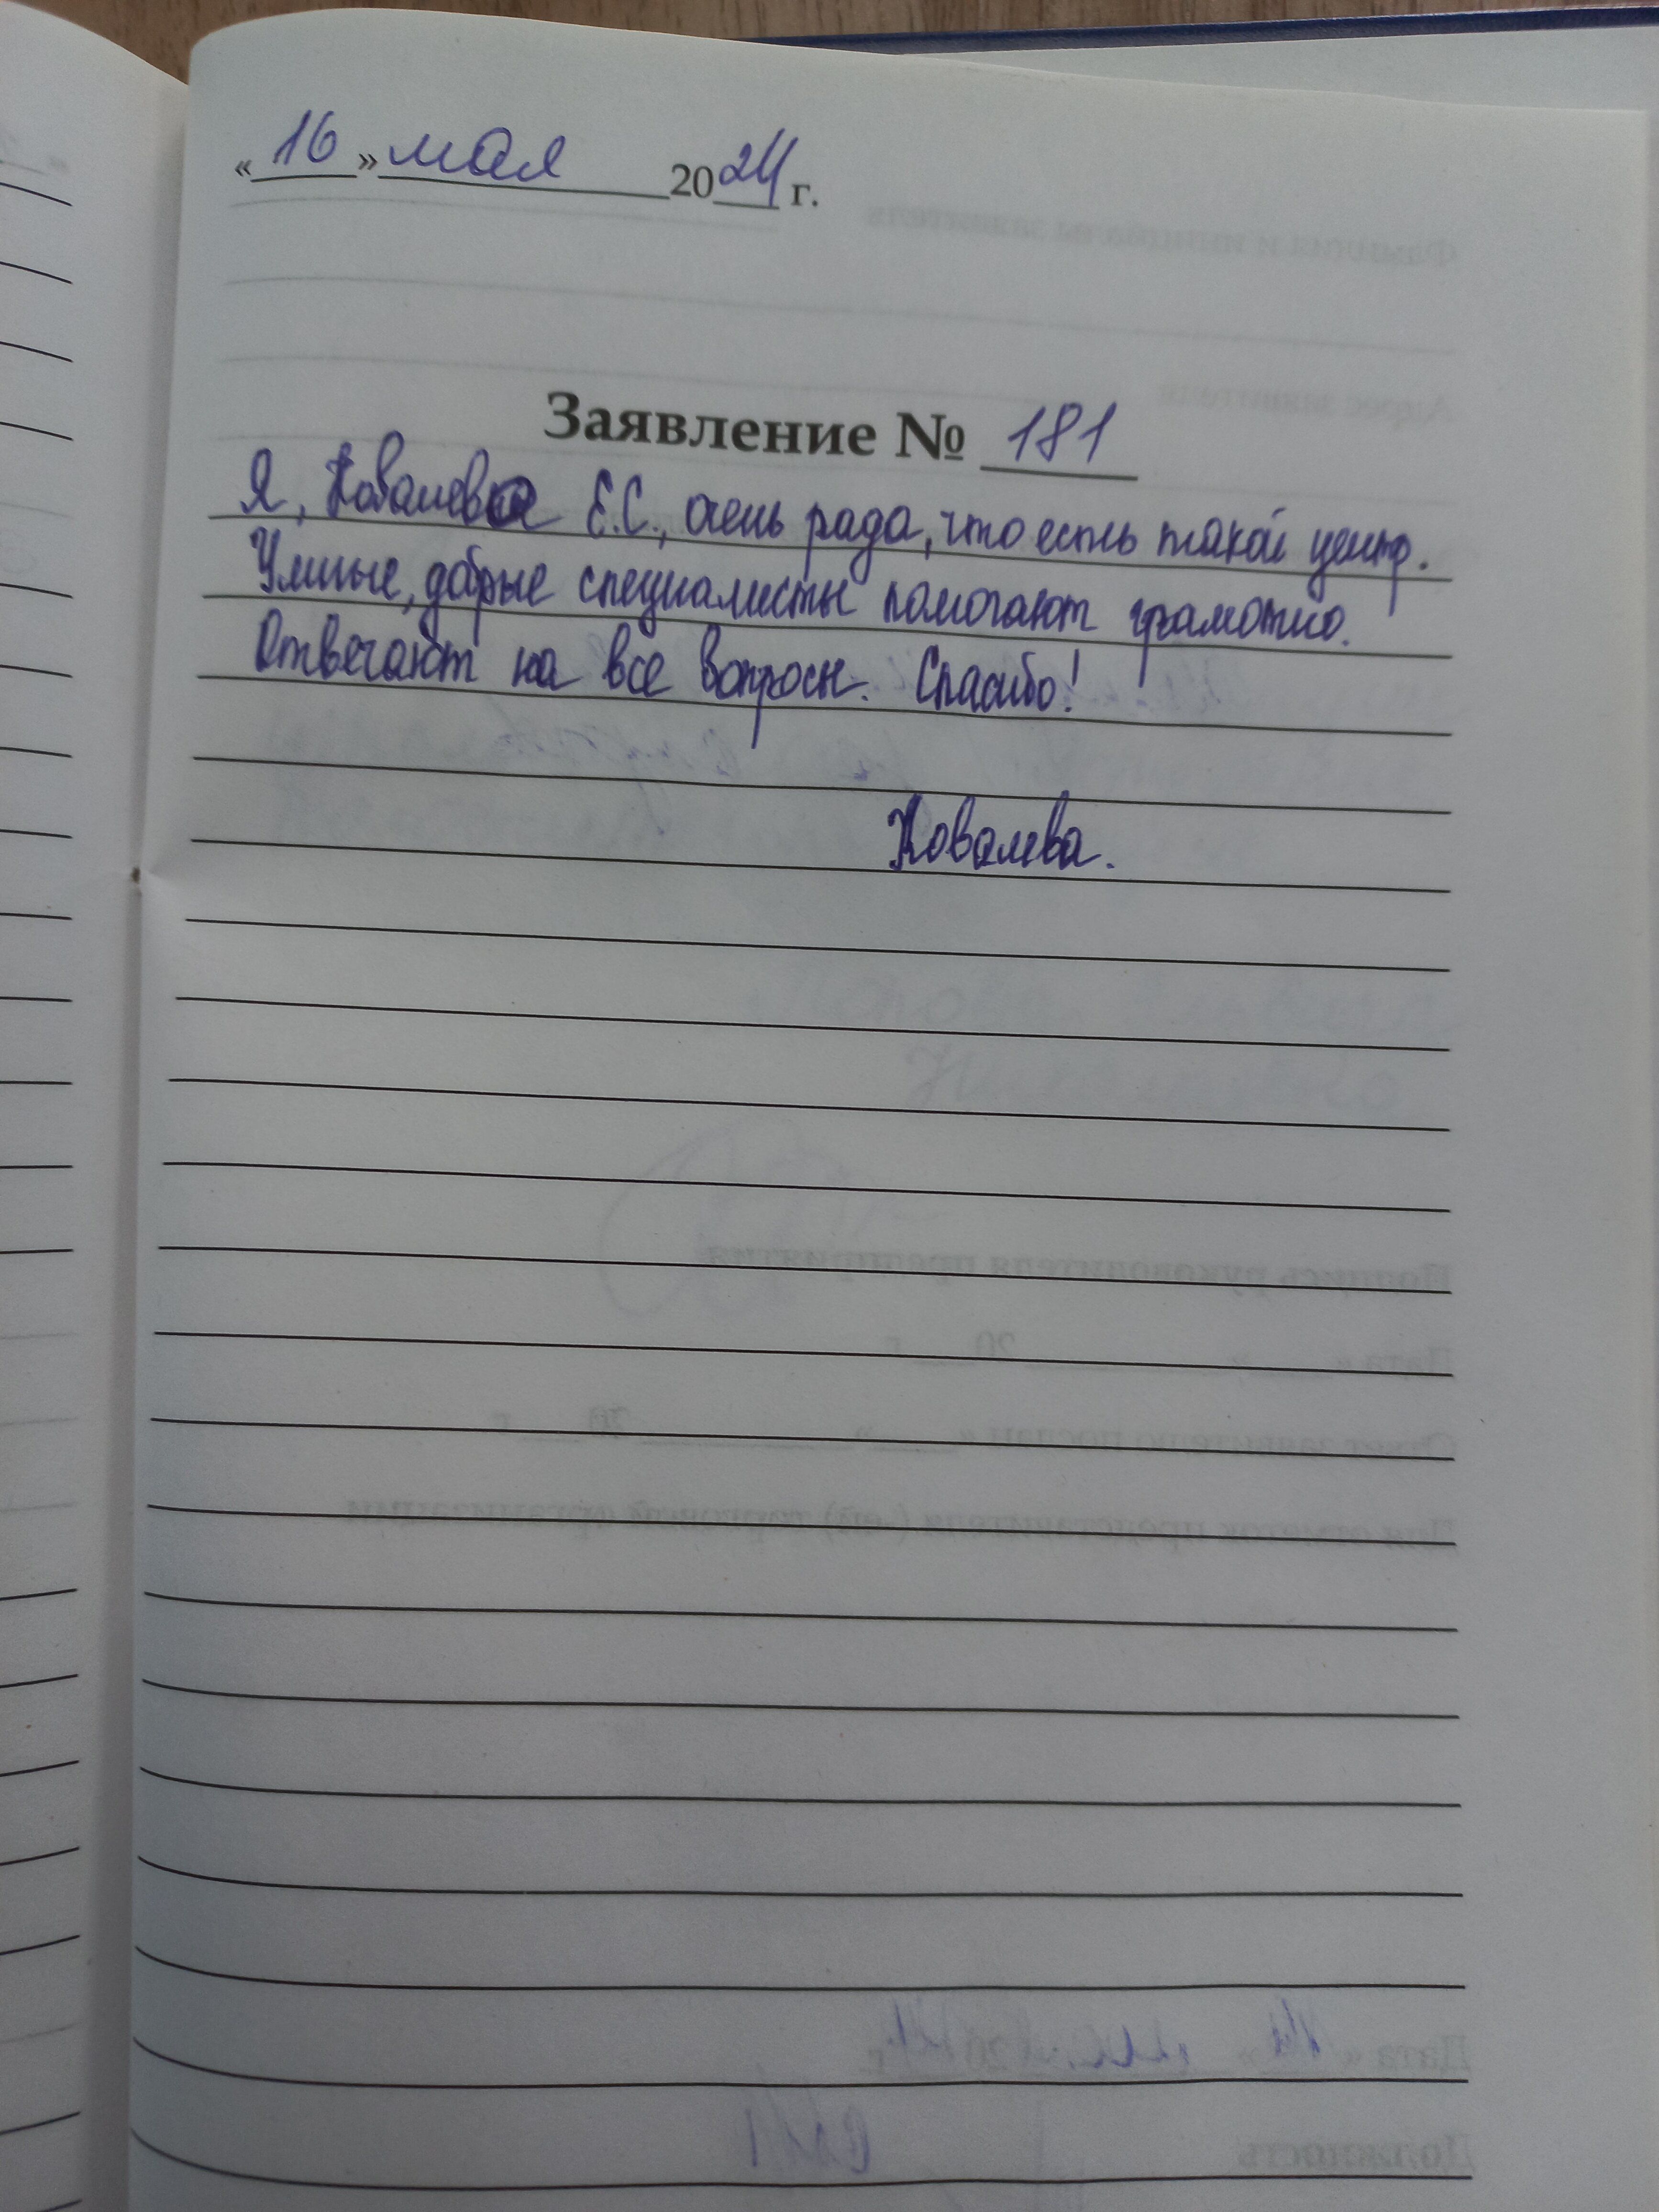 «16» мая 2024 г.
Заявление № 181
Я, Ковалева Е.С., очень рада, что есть такой центр.
Умные, добрые специалисты помогают грамотно.
Отвечают на все вопросы. Спасибо!
Ковалева.